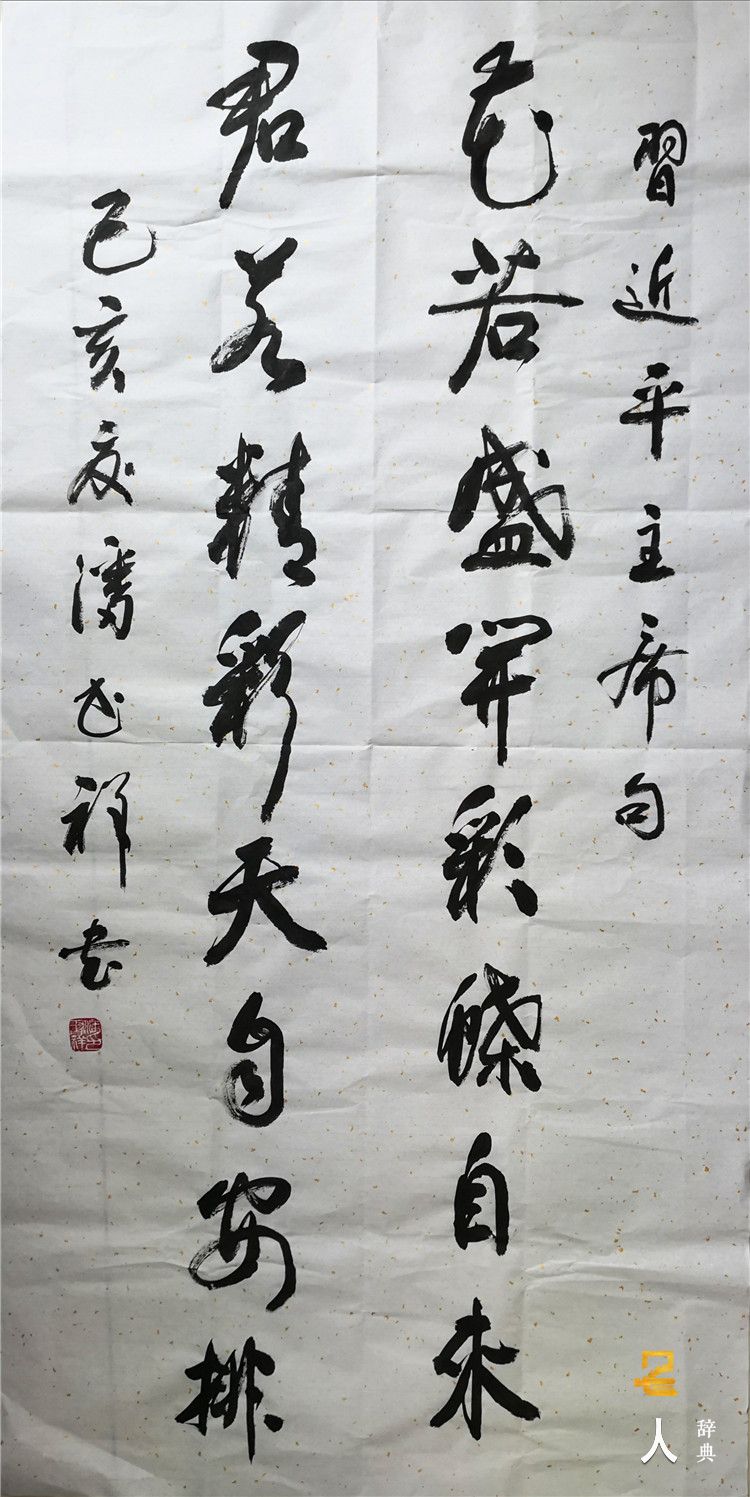 習近平主席句
花若盛开彩蝶自来
君若精彩天自安排
己亥夏潘志祥书
人
辞典